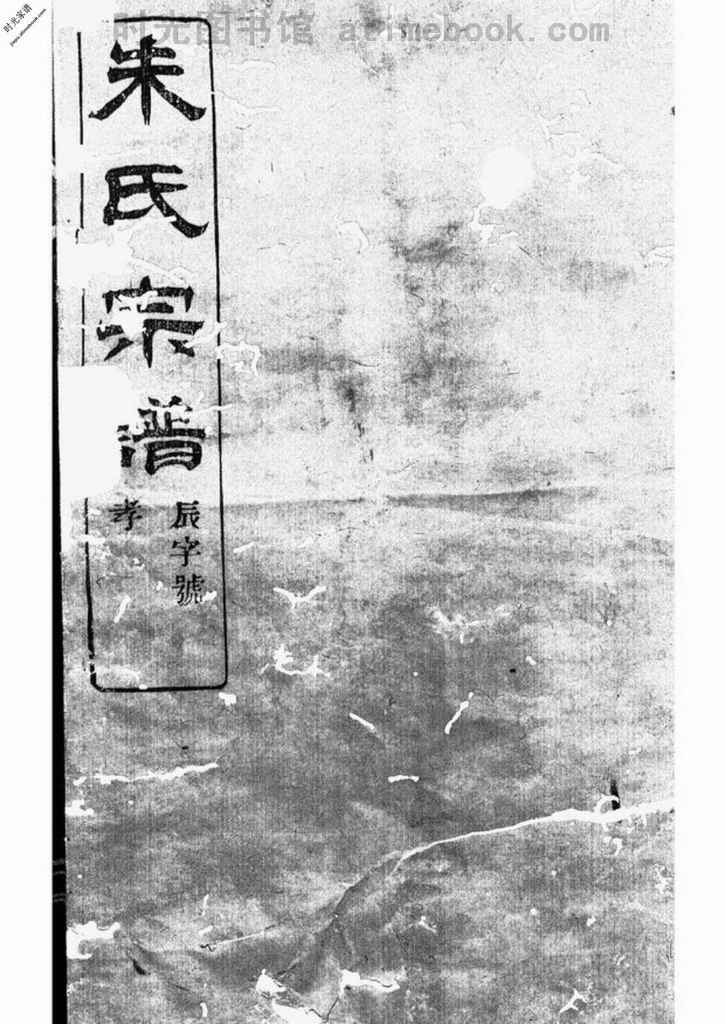 时光图书馆 atimebook.com
时光家谱
朱氏宗譜
辰字號
孝